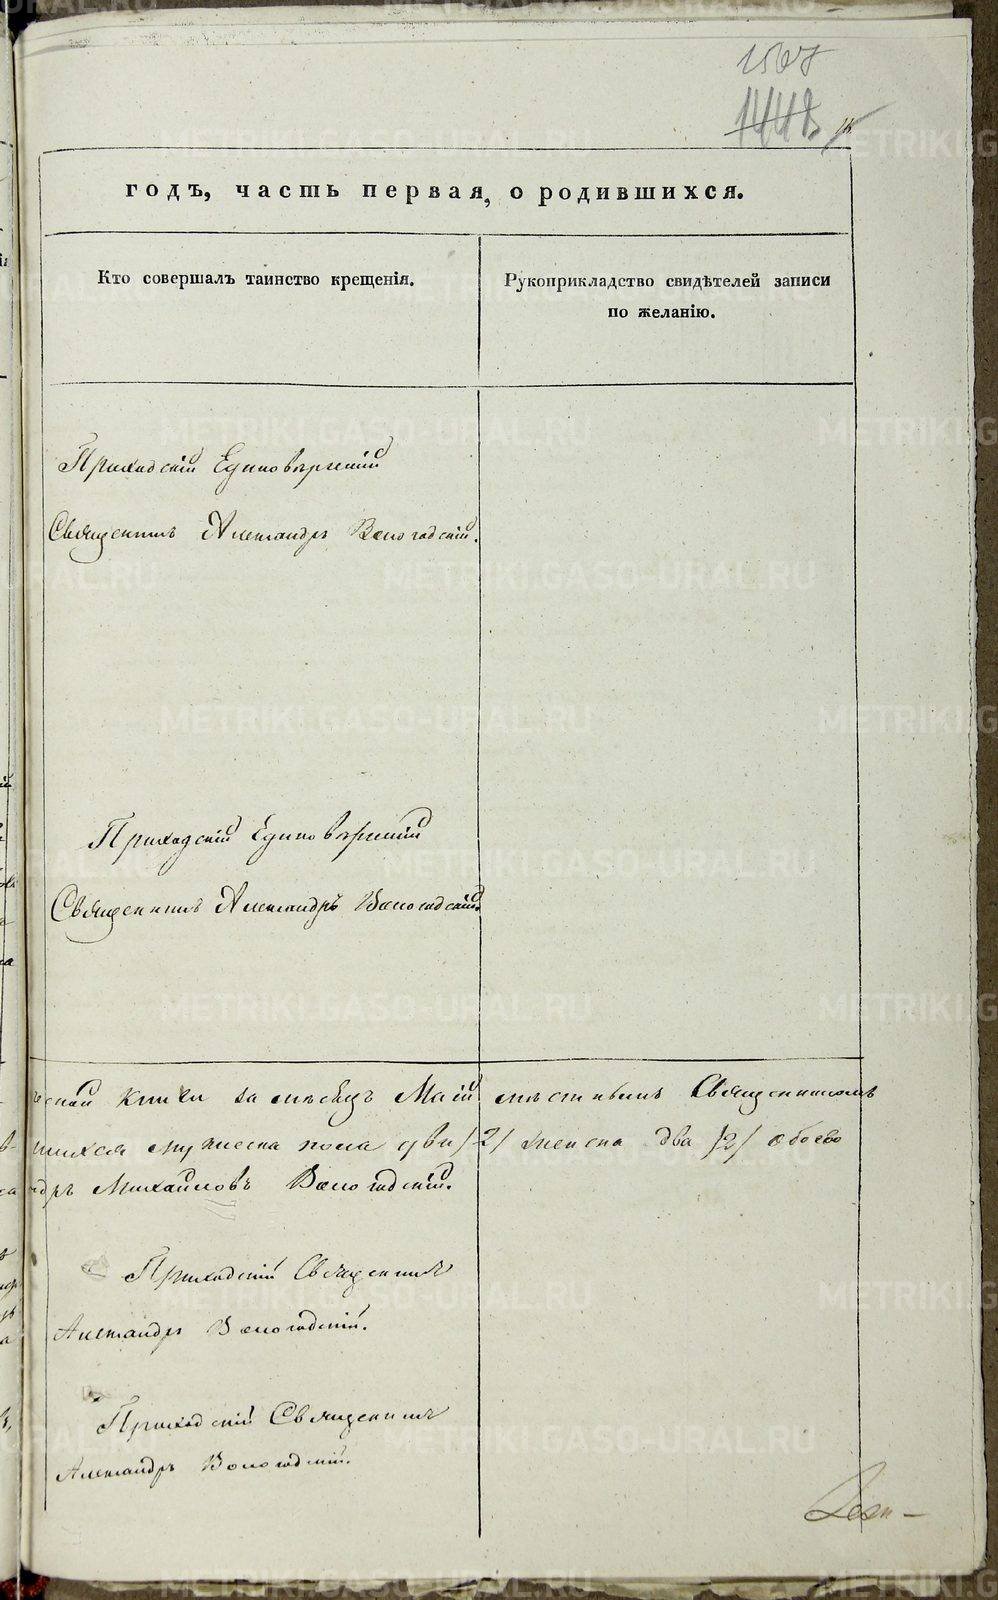 1567
1448
годъ, часть первая, о родившихся.
Кто совершалъ таинство крещенія.
Рукоприкладство свидѣтелей записи
по желанію.
Приходскій Единовѣрческій
Священникъ Александръ Вологодскій.
Приходскій Единовѣрческій
Священникъ Александръ Вологодскій.
книги за мѣсяцъ Маій мѣстнымъ Священникомъ
шихся мужеска пола два /2/ женска два /2/ обоего
ндръ Михайловъ Вологодскій.
Приходскій Священникъ
Александръ Вологодскій.
Приходскій Священникъ
Александръ Вологодскій.
METRIKI.GASO-URAL.RU